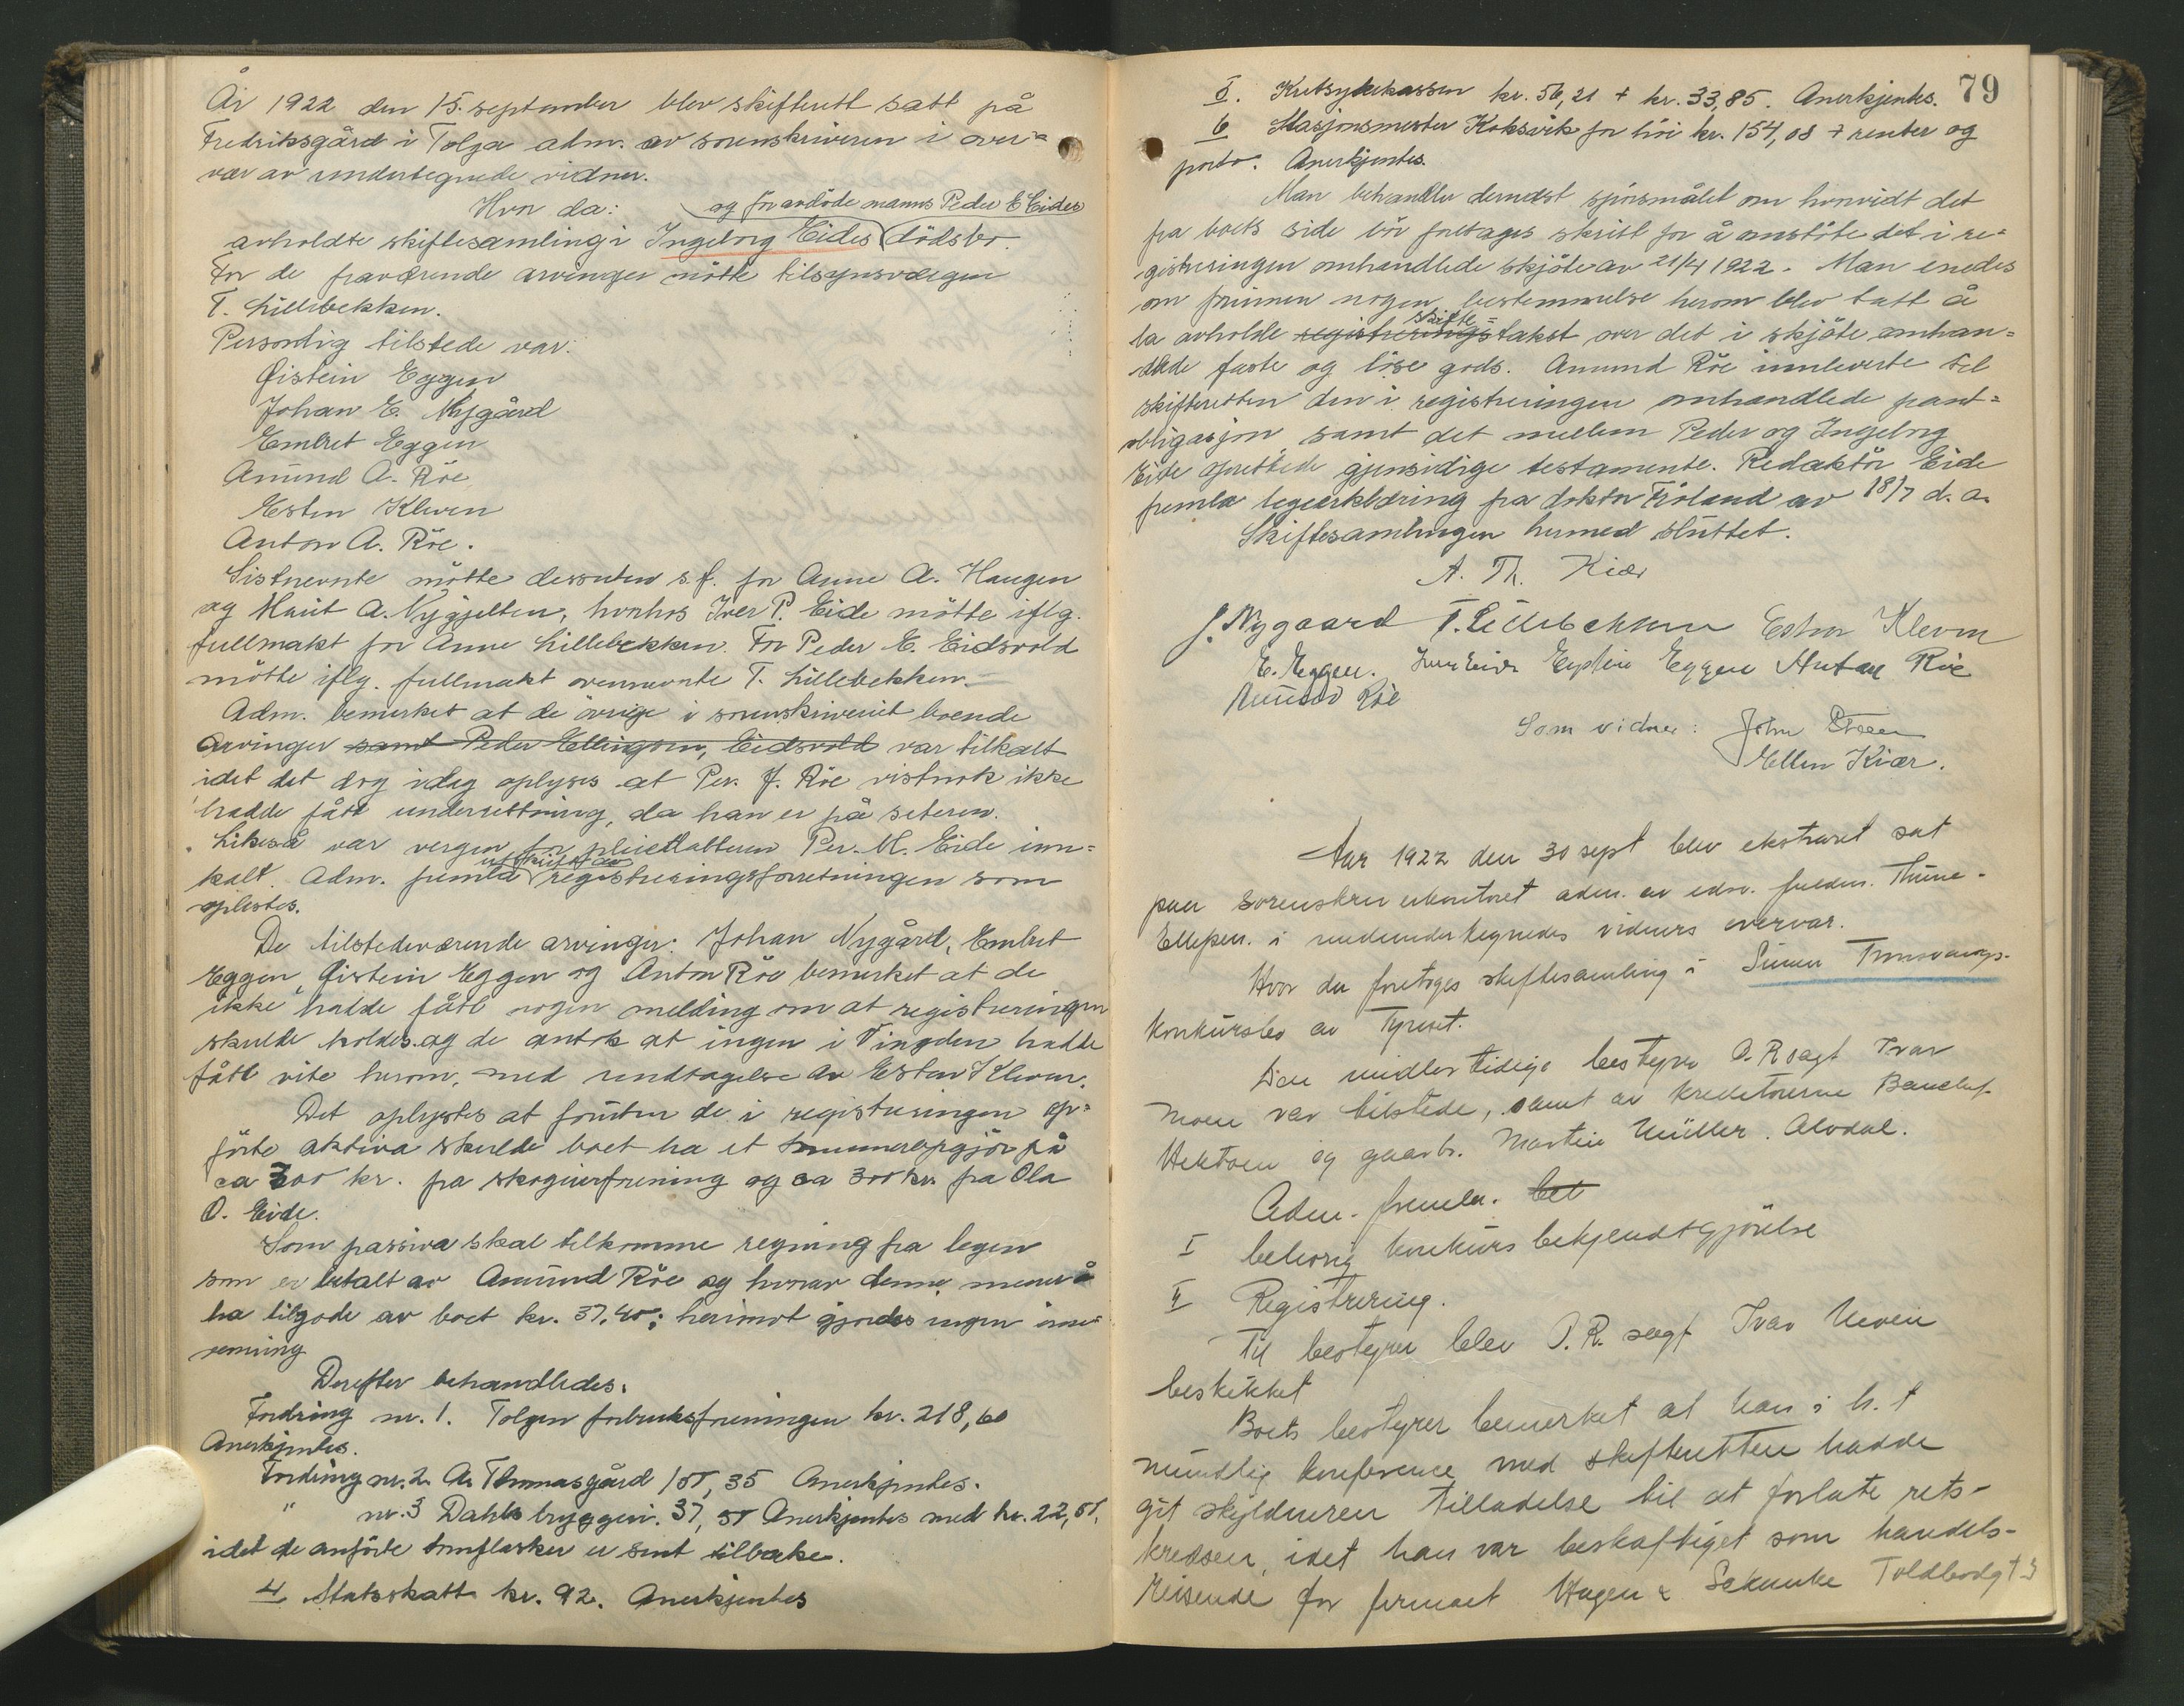 År 1922 den 15. september blev skifterett satt på
Fredriksgård i Tolga adm. av sorenskriveren i over=
vær av undertegnede vidner.
Hvor da:
og før avdøde manns Peder E Eides
avholdte skiftesamling i Ingeborg Eides dödsbo.
For de fraværende arvinger mötte tilsynsvergen
T. Lillebekken.
Personlig tilstede var:
Øistein Eggen
Johan E. Nygård
Embret Eggen
Amund A. Röe
Esten Kleven
Anton A. Röe.
Sistnevnte mötte dessuten s.f. for Anne A. Haugen
og Marit A. Nygjelten, hvorhos Iver P. Eide mötte iflg.
fullmakt for Anne Lillebekken. For Peder E. Eidsvold
mötte iflg. fullmakt ovennevnte T. Lillebekken.
Adm. bemerket at de övrige i sorenskriveriet boende
arvinger samt Peder Ellingsen, Eidsvold var tilkalt
idet det dog idag oplyses at Per. J. Röe vistnok ikke
hadde fått underrettning, da han er på seteren.
Likeså var vergen for pleiedatteren Per. M. Eide inn=
utskrift av
kalt. Adm. fremla registreringsforretningen som
oplestes.
De tilstedeværende arvinger: Johan Nygård, Embret
Eggen, Øistein Eggen og Anton Röe bemerket at de
ikke hadde fått nogen melding om at registreringen
skulde holdes og de antok at ingen i Vingelen hadde
fått vite herom, med undtagelse av Esten Kleven.
Det oplystes at foruten de i registreringen op=
förte aktiva skulde boet ha et tömmeropgjör på
ca 300 kr. fra skogeierforening og ca 300 kr. fra Ola
O. Eide.
Som passiva skal tilkomme regning fra legen
som er betalt av Amund Röe og hvorav denne mener å
ha tilgode av boet kr. 37,40; herimot gjordes ingen inn=
venning
Derefter behandledes:
Fordring nr. 1. Tolgen forbruksforeningen kr. 218,60
Anerkjentes.
Fordring nr. 2. A. Thomasgård 105,35 Anerkjentes.
" nr. 3 Dahls bryggeri. 37,50 Anerkjentes med kr. 22,50,
idet de anförte tomflasker er sent tilbake.
4 Statsskatt kr. 92. Anerkjentes
79
5. Kretssykekassen kr. 56,21 + kr. 33,85. Anerkjentes.
6 Stasjonsmester Koksvik for höi kr. 154,08 + renter og
porto. Anerkjentes.
Man behandler dernæst spörsmålet om hvorvidt det
fra boets side bör foretages skritt for å omstöte det i re=
gistreringen omhandlede skjöte av 21/4 1922. Man enedes
om forinnen nogen bestemmelse herom blev tatt å
skifte=
la avholde registreringstakst over det i skjöte omhan=
dlede faste og löse gods. Amund Röe innleverte til
skifteretten den i registreringen omhandlede pant=
obligasjon samt det mellem Peder og Ingeborg
Eide oprettede gjensidige testamente. Redaktör Eide
fremla legeerklæring fra doktor Fröland av 18/7 d. a.
Skiftesamlingen hermed sluttet.
A. Th. Kiær
J. Nygaard T. Lillebekken Esten Kleven
E. Eggen. Iver Eide Eystein Eggen Anton Röe
Amund Röe
Som vidner: John Steen
Ellen Kiær.
Aar 1922 den 30 sept blev ekstraret sat
paa sorenskriverkontoret adm. av edsv. fuldm. Thune-
Ellefsen. i medundertegnedes vidners overvær.
Hvor da foretoges skiftesamling i Simen Tronsvangs-
konkursbo av Tynset.
Den midlertidige bestyrer O.R sagf Ivar
Moen var tilstede, samt av kreditorerne Bankchef
Hektoen og gaardb. Martin Müller. Alvdal.
Adm. fremla. bet
I behorig konkurs bekjendtgjörelse
II Registrering.
Til bestyrer blev O.R. sagf Ivar Moen
beskikket
Boets bestyrer bemerket at han i h. t
mundtlig konference med skifteretten hadde
git skyldneren tilladelse til at forlate rets-
kredsen, idet han var beskaftiget som handels-
reisende for firmaet Hagen & Schanke Toldbodgt 3